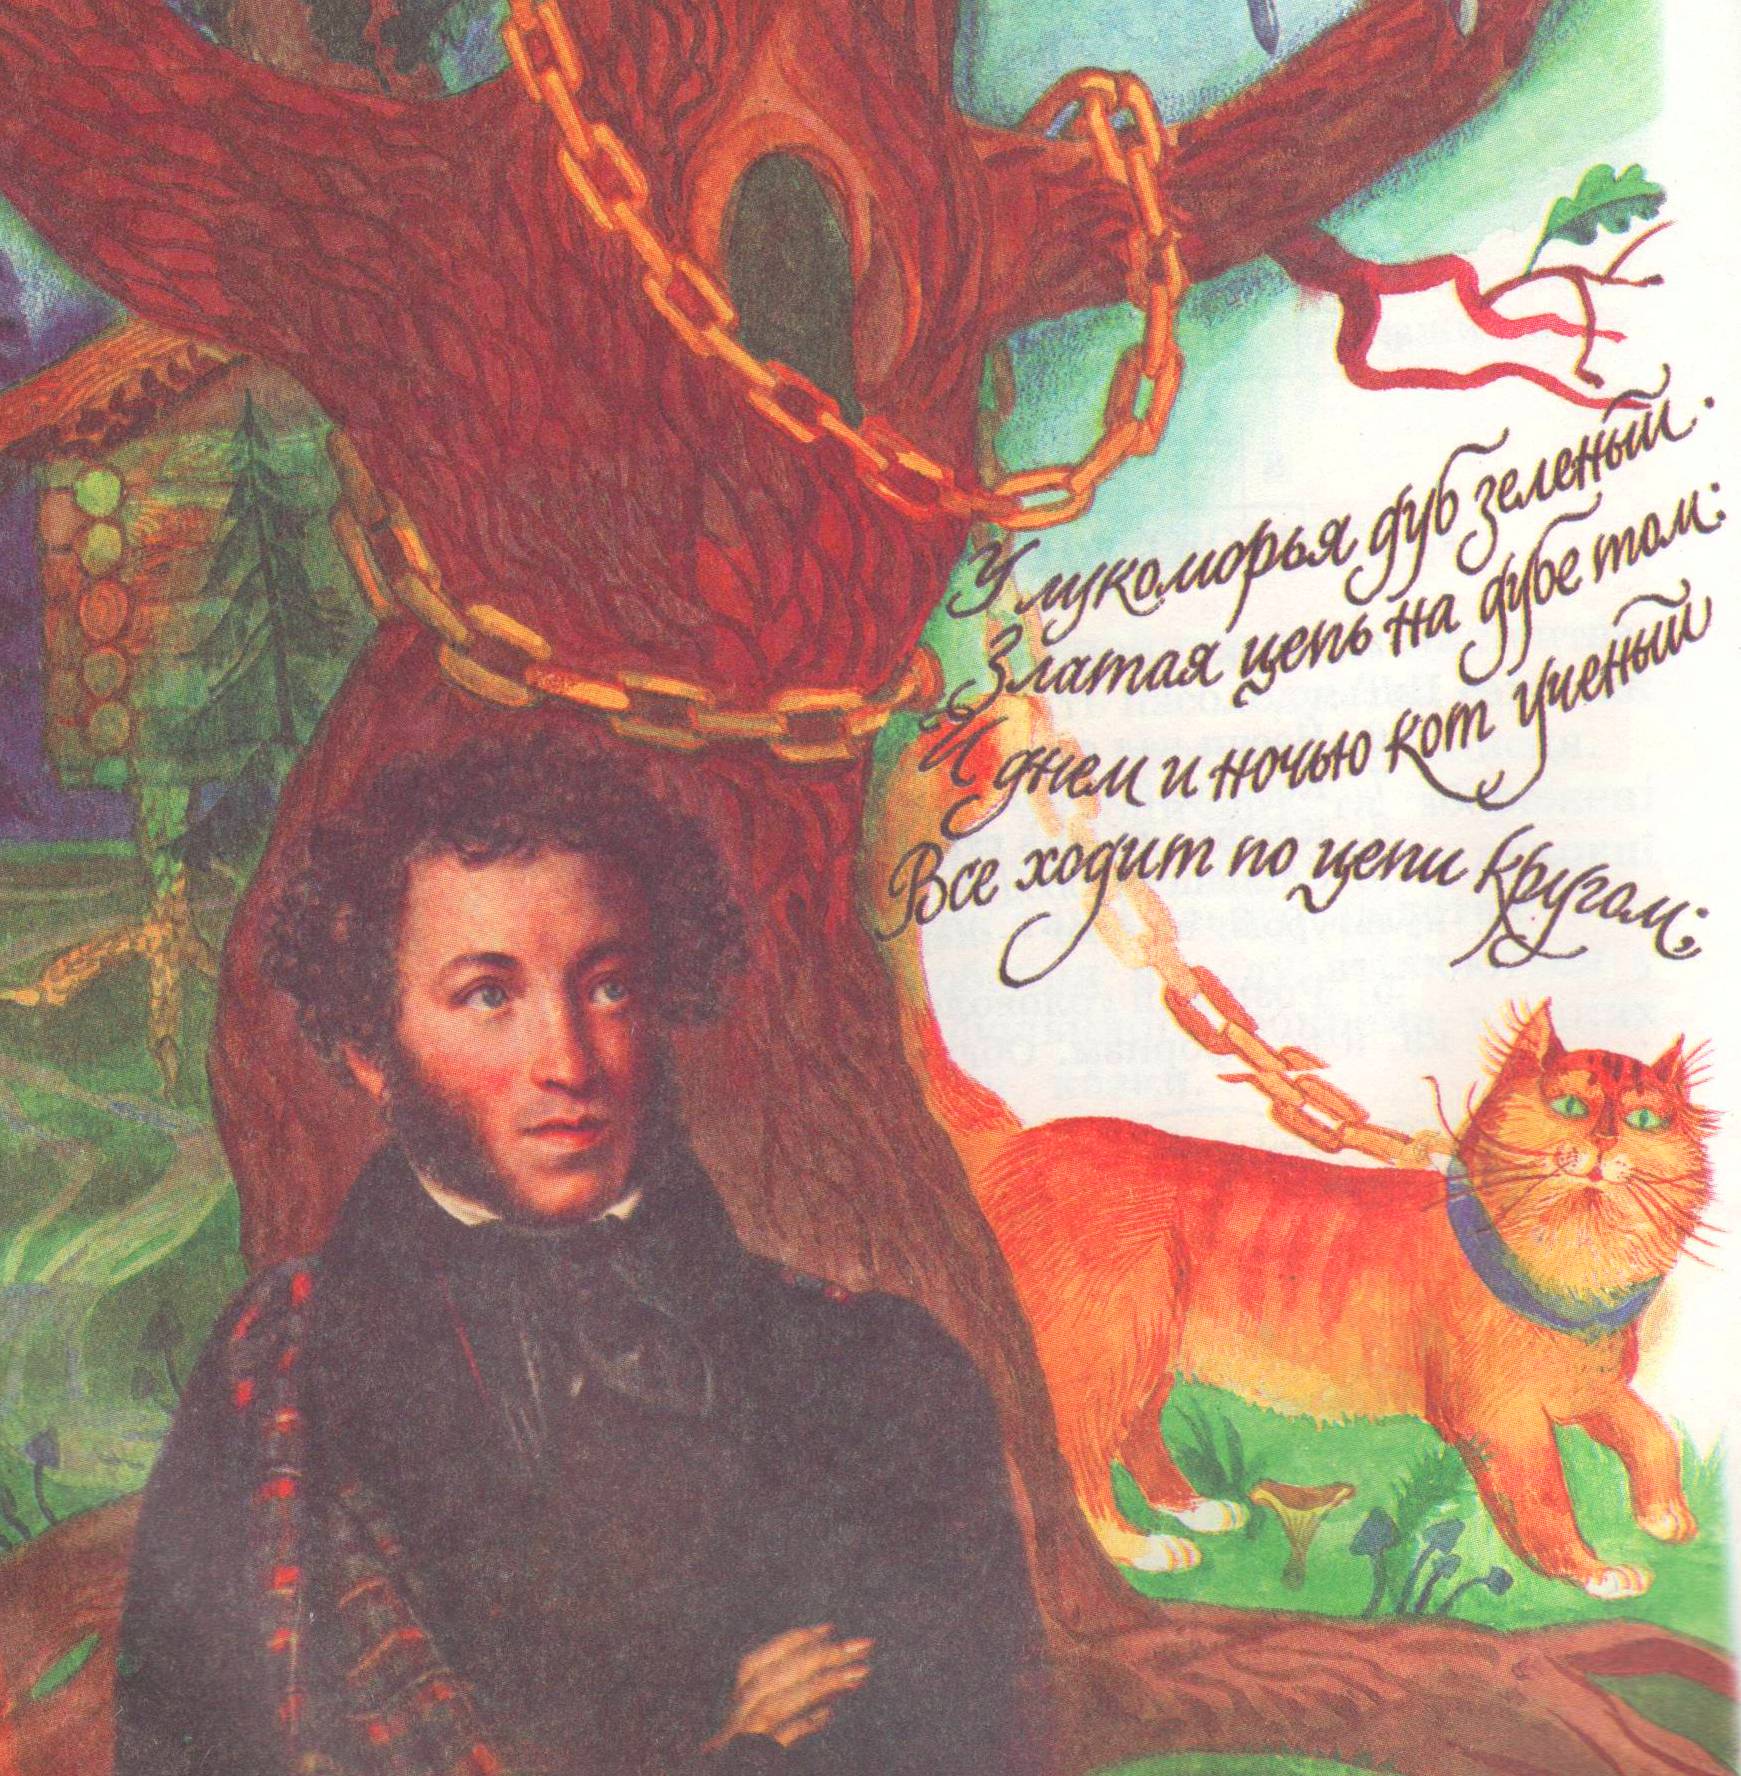 У лукоморья дуб зеленый.
Златая цепь на дубе том:
И днем и ночью кот ученый
Все ходит по цепи кругом;